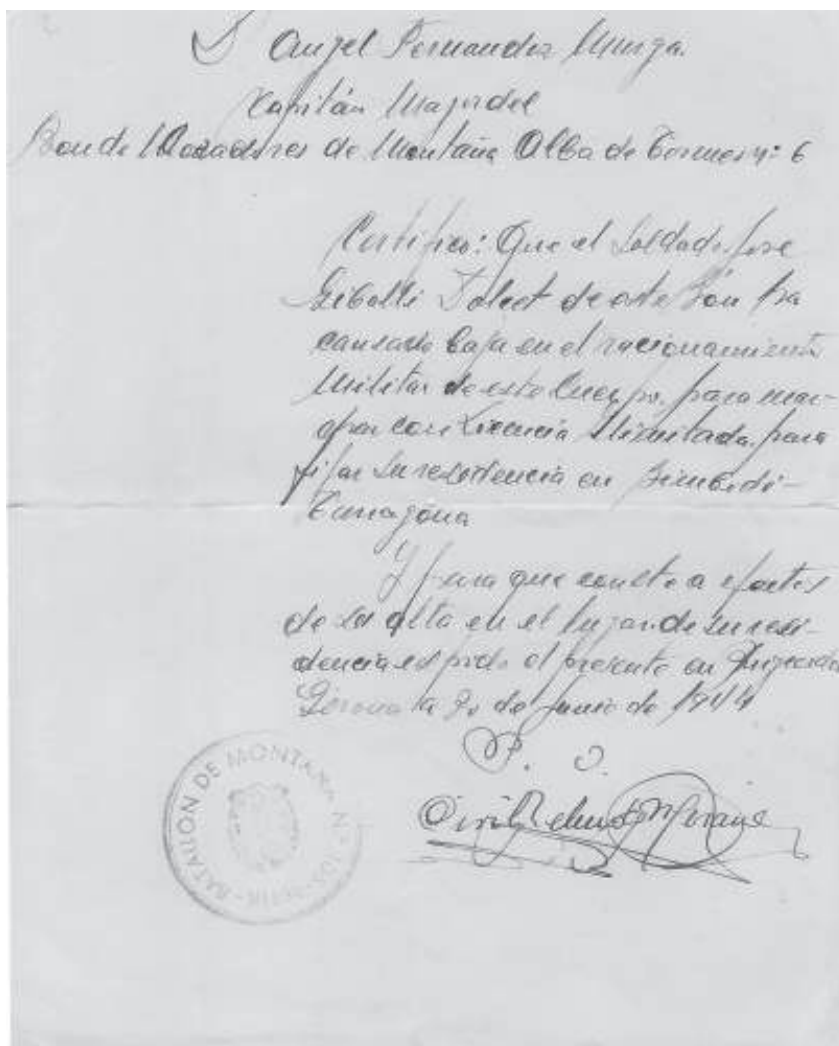 D Angel Fernandez Murga.
Capitán Mayor del
Bon de Cazadores de Montaña Alba de Tormes nº 6
Certifico: Que el Soldado Jose
de este Bón ha
causado baja en el racionamiento
Militar de este Cuerpo, para mar-
char con Licencia Ilimitada, para
fijar su residencia en
Tarragona
Y para que conste a efectos
de su alta en el lugar de su resi-
dencia expido el presente en Puigcerda
Gerona a de Junio de 1944
P. O.
BATALLON DE MONTAÑA Nº